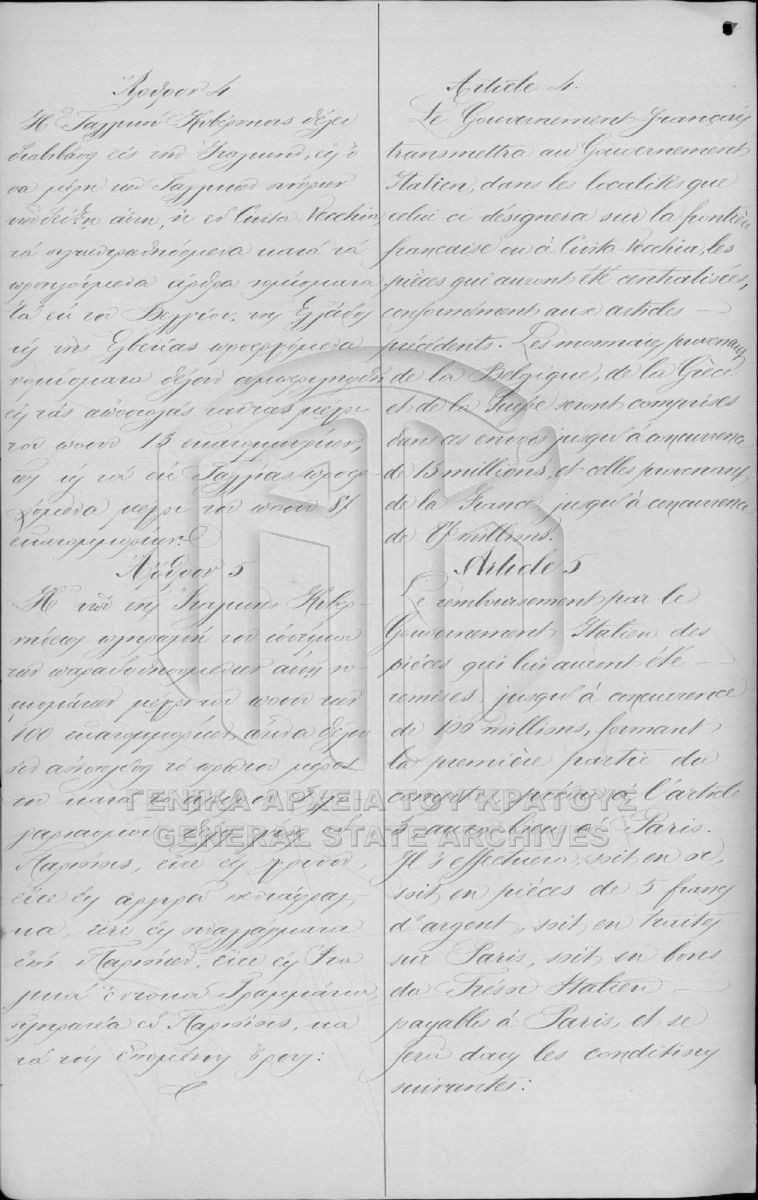 Ἄρθρον 4
Ἡ Γαλλικὴ Κυβέρνησις θέλει
διαβιβάσῃ εἰς τὴν Ἰταλικὴν, εἰς ὅ
σα μέρη τῶν Γαλλικῶν
ὑποδείξῃ αὕτη, ἢ ἐν Civita Vecchia,
τὰ συγκεντρωθησόμενα κατὰ τὰ
προηγούμενα ἄρθρα νομίσματα.
Τὰ ἐκ τοῦ Βελγίου, τῆς Ἑλλάδος
καὶ τῆς Ἑλβετίας προερχόμενα
νομίσματα θέλουν συμπεριληφθῆ
εἰς τὰς ἀποστολὰς ταύτας μέχρι
τοῦ ποσοῦ 13 ἑκατομμυρίων,
καὶ τὰ ἐκ Γαλλίας προερ-
χόμενα μέχρι τοῦ ποσοῦ 87
ἑκατομμυρίων.
Ἄρθρον 5
Ἡ ὑπὸ τῆς Ἰταλικῆς Κυβερ-
νήσεως πληρωμὴ τοῦ
τῶν παραδοθησομένων αὐτῇ νο-
μισμάτων μέχρι τοῦ ποσοῦ τῶν
100 ἑκατομμυρίων, ἅτινα θέλου
σιν ἀποτελέσῃ τὸ πρῶτον μέρος
τοῦ κατὰ τὸ ἄρθρον 3 λο-
γαριασμοῦ, θέλει γίνει ἐν
Παρισίοις, εἴτε εἰς χρυσὸν,
εἴτε εἰς ἀργυρᾶ πεντάφραγ-
κα, εἴτε εἰς συναλλάγματα
ἐπὶ Παρισίων, εἴτε εἰς Ἰτα
λικὰ ἔντοκα Γραμμάτια,
πληρωτέα ἐν Παρισίοις, κα
τὰ τοὺς ἑπομένους ὅρους:
Article 4.
Le Gouvernement français
transmettra au Gouvernement
Italien, dans les localités que
celui ci désignera sur la frontière
française ou à Civita Vecchia, les
pièces qui auront été centralisées,
conformément aux articles
précédents. Les monnaies provenant
de la Belgique, de la Grèce
et de la Suisse seront comprises
dans ces envois jusqu'à concurrence
de 13 millions, et celles provenant
de la France, jusqu'à concurrence
de 87 millions.
Article 5
Le remboursement par le
Gouvernement Italien des
pièces qui lui auront été
remises, jusqu'à concurrence
de 100 millions, formant
la première partie du
compte prévu à l'article
3 aura lieu à Paris.
Il s'effectuera, soit en or,
soit en pièces de 5 francs
d'argent, soit en traites
sur Paris, soit en bons
du Trésor Italien
payables à Paris, et se
fera dans les conditions
suivantes:
ΓΕΝΙΚΑ ΑΡΧΕΙΑ ΤΟΥ ΚΡΑΤΟΥΣ
GENERAL STATE ARCHIVES